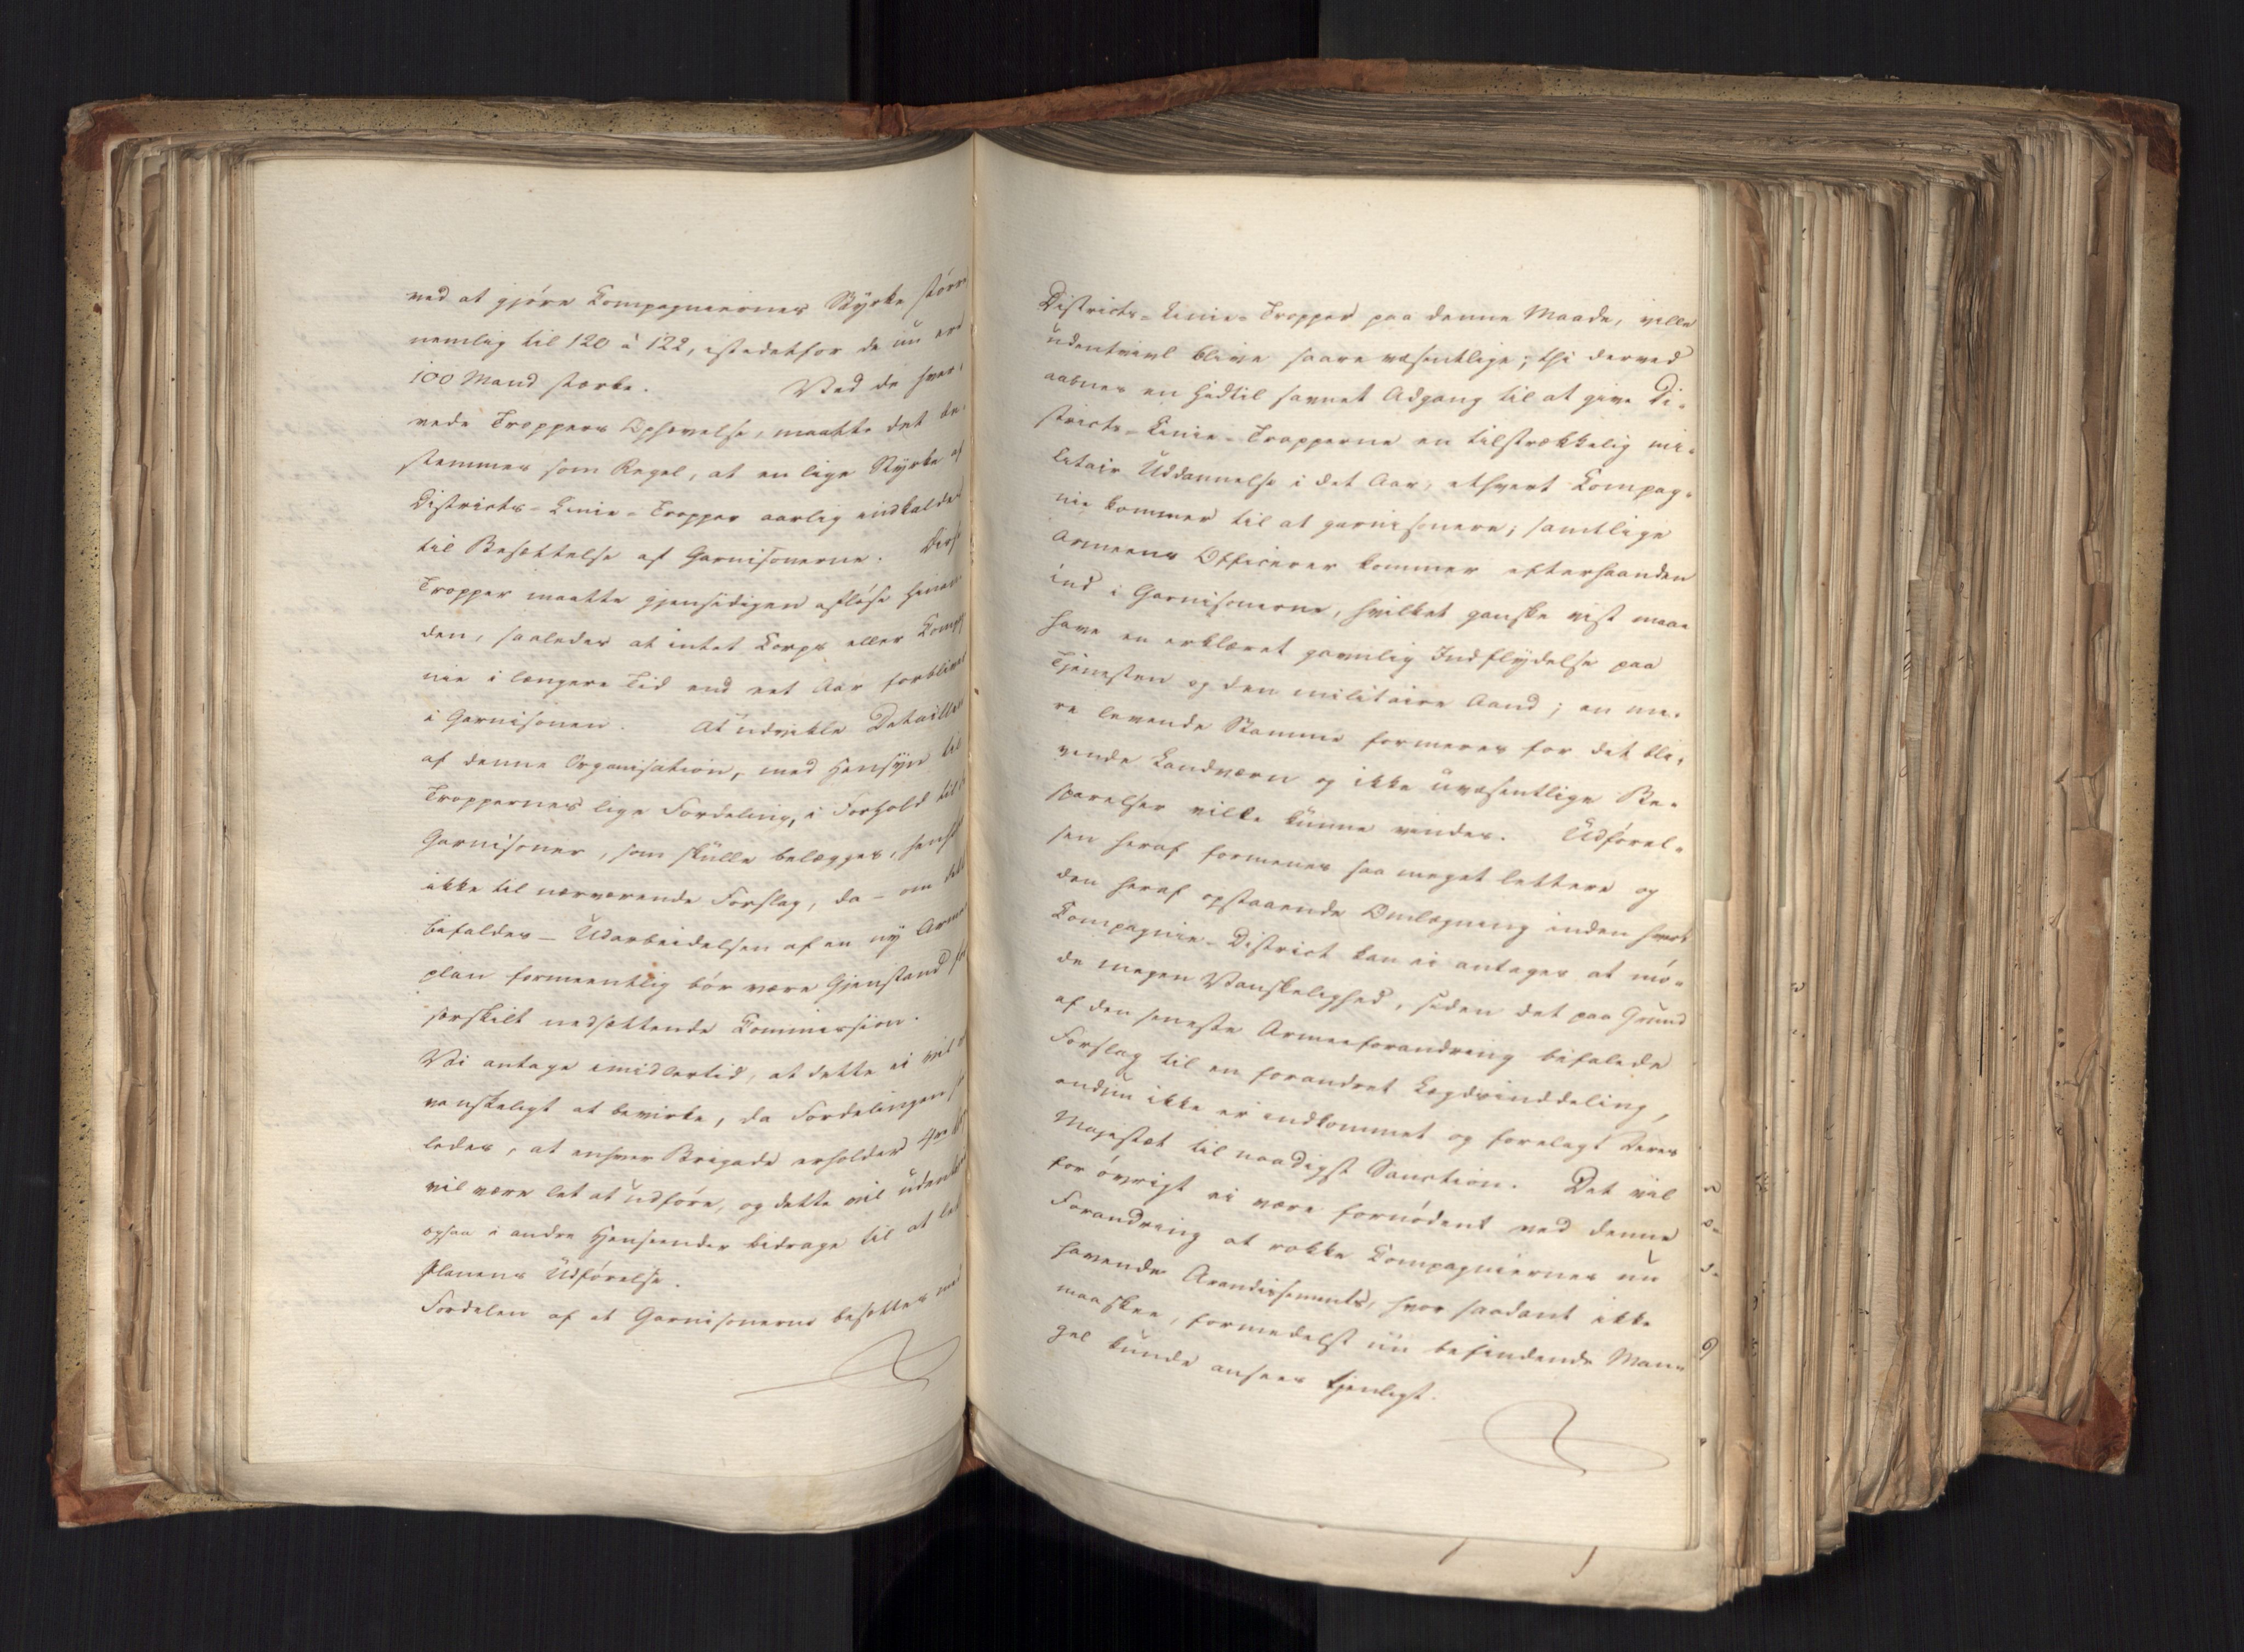 ved at gjöre Compagniernes Styrke större
nemlig til 120 à 122, istedetfor de nu ere
100 Mand stærke. Ved de hver-
vede Troppers Ophævelse, maatte det be-
stemmes som Regel, at en lige Styrke af
Districts-Linie-Tropper aarlig indkaldes
til Besættelse af Garnisonerne. Disse
Tropper maatte gjensidigen aflöse hinan-
den, saaledes at intet Corps eller Compag
nie i længere Tid end eet Aar forbliver
i Garnisonen. At udvikle Detaillen
af denne Organisation, med Hensyn til
Troppernes lige Fordeling, i Forhold til
Garnisoner, som skulle belægges, henhör
ikke til nærværende Forslag, da - om dette
befaldes - Udarbeidelsen af en ny Armee
plan formeentlig bör være Gjenstand for
særskilt nedsættende Commission.
Vi antage imidlertid, at dette ei vil
vanskeligt at bevirke, da Fordelingen saa
ledes, at enhver Brigade erholder 4re
vil være let at udföre, og dette vil udentvivl
ogsaa i andre Henseender bidrage til at let
Planens Udförelse.
Fordelen af at Garnisonerne besættes med
Districts-Linie-Tropper paa denne Maade, ville
udentvivl blive saare væsentlige; thi derved
aabnes en hidtil savnet Adgang til at give Di-
stricts-Linie-Tropperne en tilstrækkelig mi-
litair Uddannelse i det Aar, ethvert Compag-
nie kommer til at garnisonere; samtlige
Armeens Officerer kommer efterhaanden
ind i Garnisonerne, hvilket ganske vist maae
have en erklæret gavnlig Indflydelse paa
Tjenesten og den militaire Aand; en me-
re levende Stamme formeres for det bli-
vende Landværn og ikke uvæsentlige Be-
sparelser ville kunne vindes. Udförel-
sen heraf formenes saa meget lettere og
den heraf opstaaende Omlægning inden hvert
Compagnie-District kan ei antages at mö-
de megen Vanskelighed, siden det paa Grund
af den seneste Armeeforandring befalede
Forslag til en forandret Lægdsinddeling,
endnu ikke er indkommet og forelagt Deres
Majestæt til naadigst Sanction. Det vil
for övrigt ei være fornödent ved denne
Forandring at rokke Compagniernes nu
havende Arondissements, hvor saadant ikke
maa skee, formedelst nu befindende Man-
gel kunde ansees tjenligt.